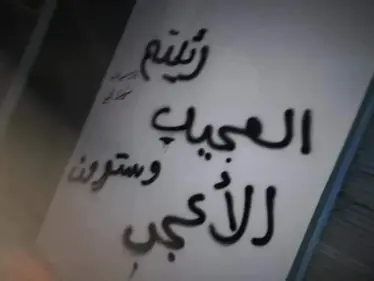 رأيتم
العجيب
وسترون
الأعجب